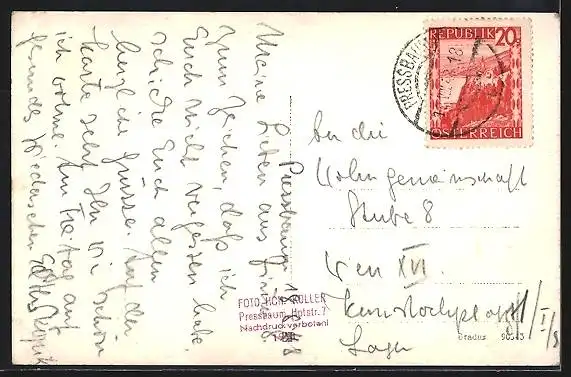 Pressbaum
Meine Lieben aus
zum Zeichen, daß ich
Euch nicht vergessen habe.
schicke Euch allen
herzliche Grüsse. Auf der
Karte seht Ihr wie schön
ich wohne. Am Freitag auf
gesundes Wiedersehen
An die
Wohngemeinschaft
Stube 8
Wien XVI.
Lager
REPUBLIK 20
ÖSTERREICH
PRESSBAUM
FOTO HCH. KOLLER
Pressbaum, Hptstr. 7
Nachdruck verboten!
Gradus